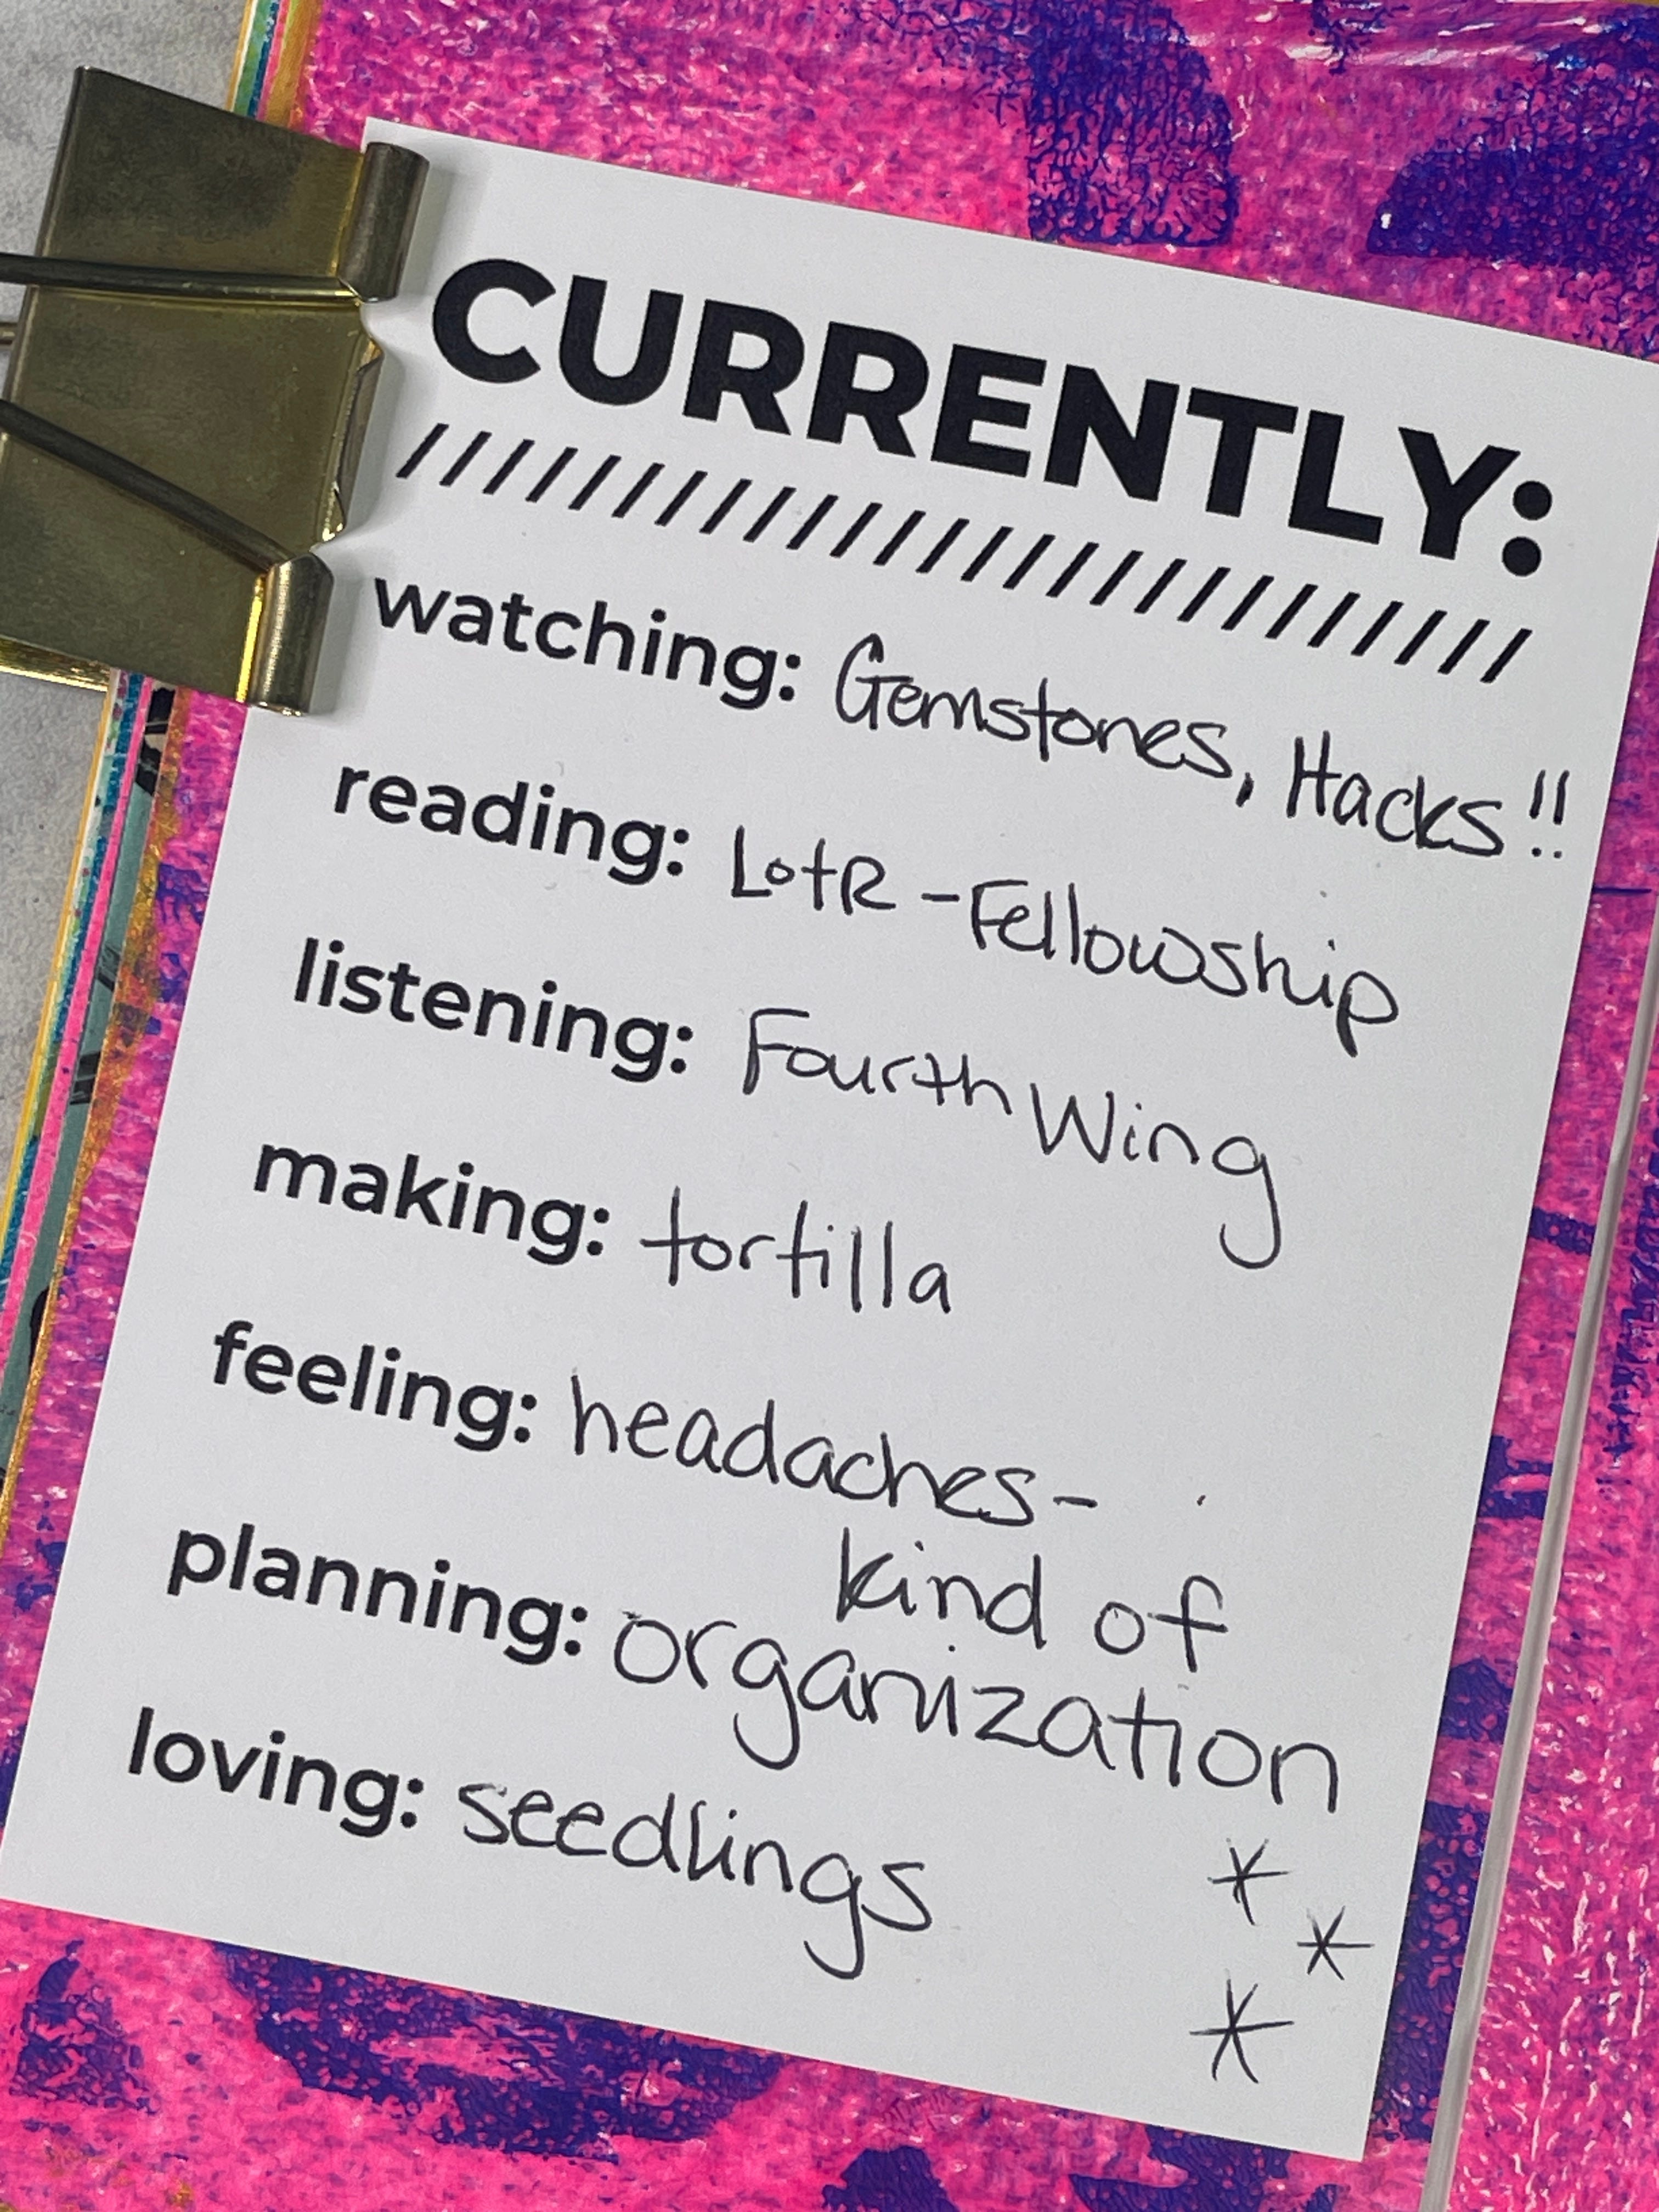 CURRENTLY:
////////////////////////////
watching: Gemstones, Hacks!!
reading: LotR - Fellowship
listening: Fourth Wing
making: tortilla
feeling: headaches-
kind of
planning: organization
loving: seedlings